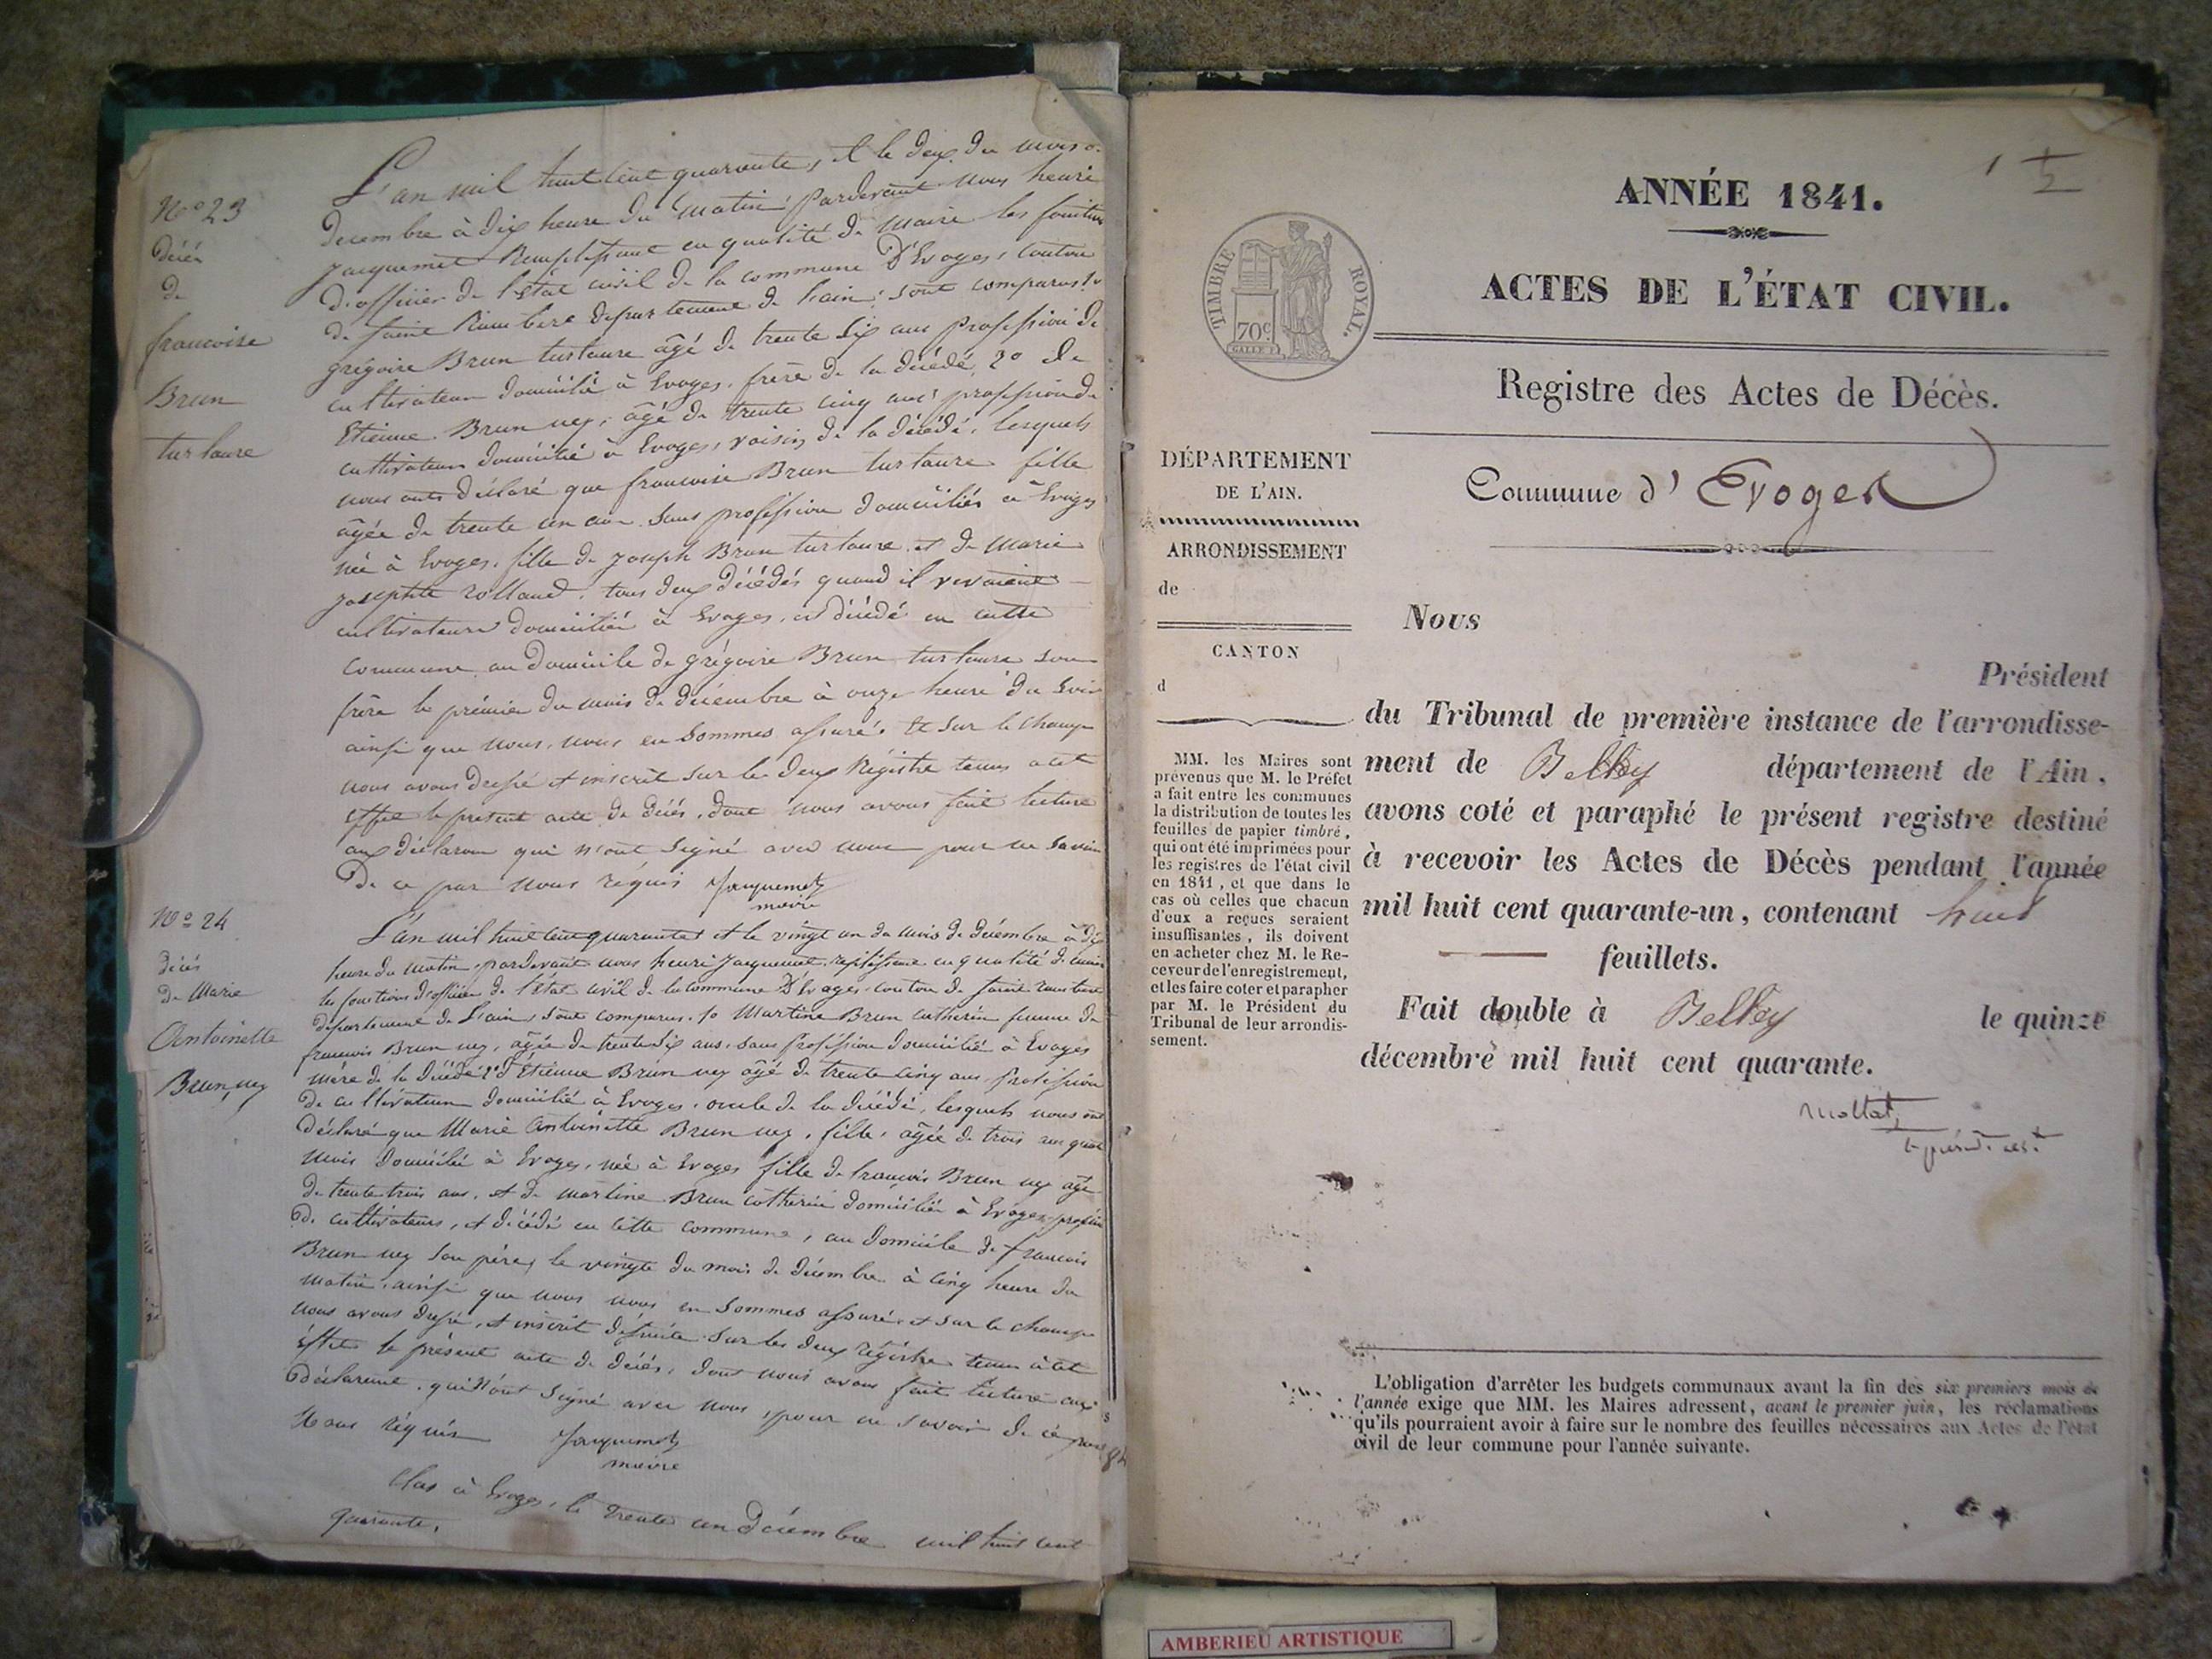 N° 23
Décé
de
francoise
Brun
turlaure
L'an mil huit cent quarante, et le deux du mois
decembre à dix heure du matin, pardevant nous henri
jacquemet Remplissant en qualité de Maire les
d'officier de l'état civil de la commune D'Evoges, canton
de saint Rambert departement de l'ain, sont comparus 1°
grégoire Brun turlaure âgé de trente six ans profession de
cultivateur domicilié à Evoges, frère de la décédé, 2° de
Etienne Brun ney, âgé de trente cinq ans profession de
cultivateur domicilié à Evoges, voisin de la décédé, lesquels
nous onts déclaré que francoise Brun turlaure fille
âgée de trente un an sans profession domiciliés à Evoges
née à Evoges, fille de joseph Brun turlaure et de Marie
josephte rolland, tous deux décédés quand il vivaient
cultivateurs domicilié à Evoges, est décédé en cette
commune au domicile de grégoire Brun turlaure son
frère le prémier du mois de décembre à onze heure du soir
ainsi que nous, nous en sommes assuré, et sur le champ
nous avons dressé et inscrit sur les deux Régistre tenus a cet
effet le présent acte de décés, dont nous avons fait lecture
aux déclarans qui n'ont signé avec nous pour ne savoir
de ce par nous réquis Jacquemet
maire
N° 24
décés
de Marie
Antoinette
Brun, ney
L'an mil huit cent quarante et le vingt un du mois de décembre à dix
heure du matin, pardevant nous henri jacquemet, remplissant en qualité de maire
les fonctions d'officier de l'état civil de la commune D'Evoges canton de saint rambert
département de L'ain, sont comparus 1° Martine Brun catherin femme de
francois Brun ney, âgée de trente six ans, sans profession domicilié à Evoges
mére de la décédé 2° d'Étienne Brun ney âgé de trente cinq ans profession
de cultivateur domicilié à Evoges, oncle de la décédé, lesquels nous ont
déclaré que Marie Antoinette Brun ney, fille, âgée de trois ans quat
mois domicilié à Evoges, née à Evoges fille de francois Brun ney âgé
de trente trois ans, et de martine Brun catherin domiciliés à Evoges
de cultivateurs, et décédé en cette commune, au domicile de francois
Brun ney son père, le vingte du mois de décembre à cinq heure du
matin, ainsi que nous nous en sommes assuré, et sur le champ
nous avons dressé, et inscrit sur les deux régistre tenus à cet
éffet le présent acte de décés, dont nous avons fait lecture aux
déclarant, qui n'ont signé avec nous, pour ne savoir de ce par
Nous réquis Jacquemet
maire
Clos à Evoges, le trente un Décembre mil huit cent
quarante,
1
ANNÉE 1841.
ACTES DE L'ÉTAT CIVIL.
TIMBRE ROYAL.
70c
Registre des Actes de Décès.
DÉPARTEMENT
DE L'AIN.
ARRONDISSEMENT
de
CANTON
d
MM. les Maires sont
prévenus que M. le Préfet
a fait entre les communes
la distribution de toutes les
feuilles de papier timbré,
qui ont été imprimées pour
les registres de l'état civil
en 1841, et que dans le
cas où celles que chacun
d'eux a reçues seraient
insuffisantes, ils doivent
en acheter chez M. le Re-
ceveur de l'enregistrement,
et les faire coter et parapher
par M. le Président du
Tribunal de leur arrondis-
sement.
Commune d' Evoges
Nous
Président
du Tribunal de première instance de l'arrondisse-
ment de Belley département de l'Ain,
avons coté et paraphé le présent registre destiné
à recevoir les Actes de Décès pendant l'année
mil huit cent quarante-un, contenant huit
feuillets.
Fait double à Belley le quinze
décembre mil huit cent quarante.
L'obligation d'arrêter les budgets communaux avant la fin des six premiers mois de
l'année exige que MM. les Maires adressent, avant le premier juin, les réclamations
qu'ils pourraient avoir à faire sur le nombre des feuilles nécessaires aux Actes de l'état
civil de leur commune pour l'année suivante.
AMBERIEU ARTISTIQUE